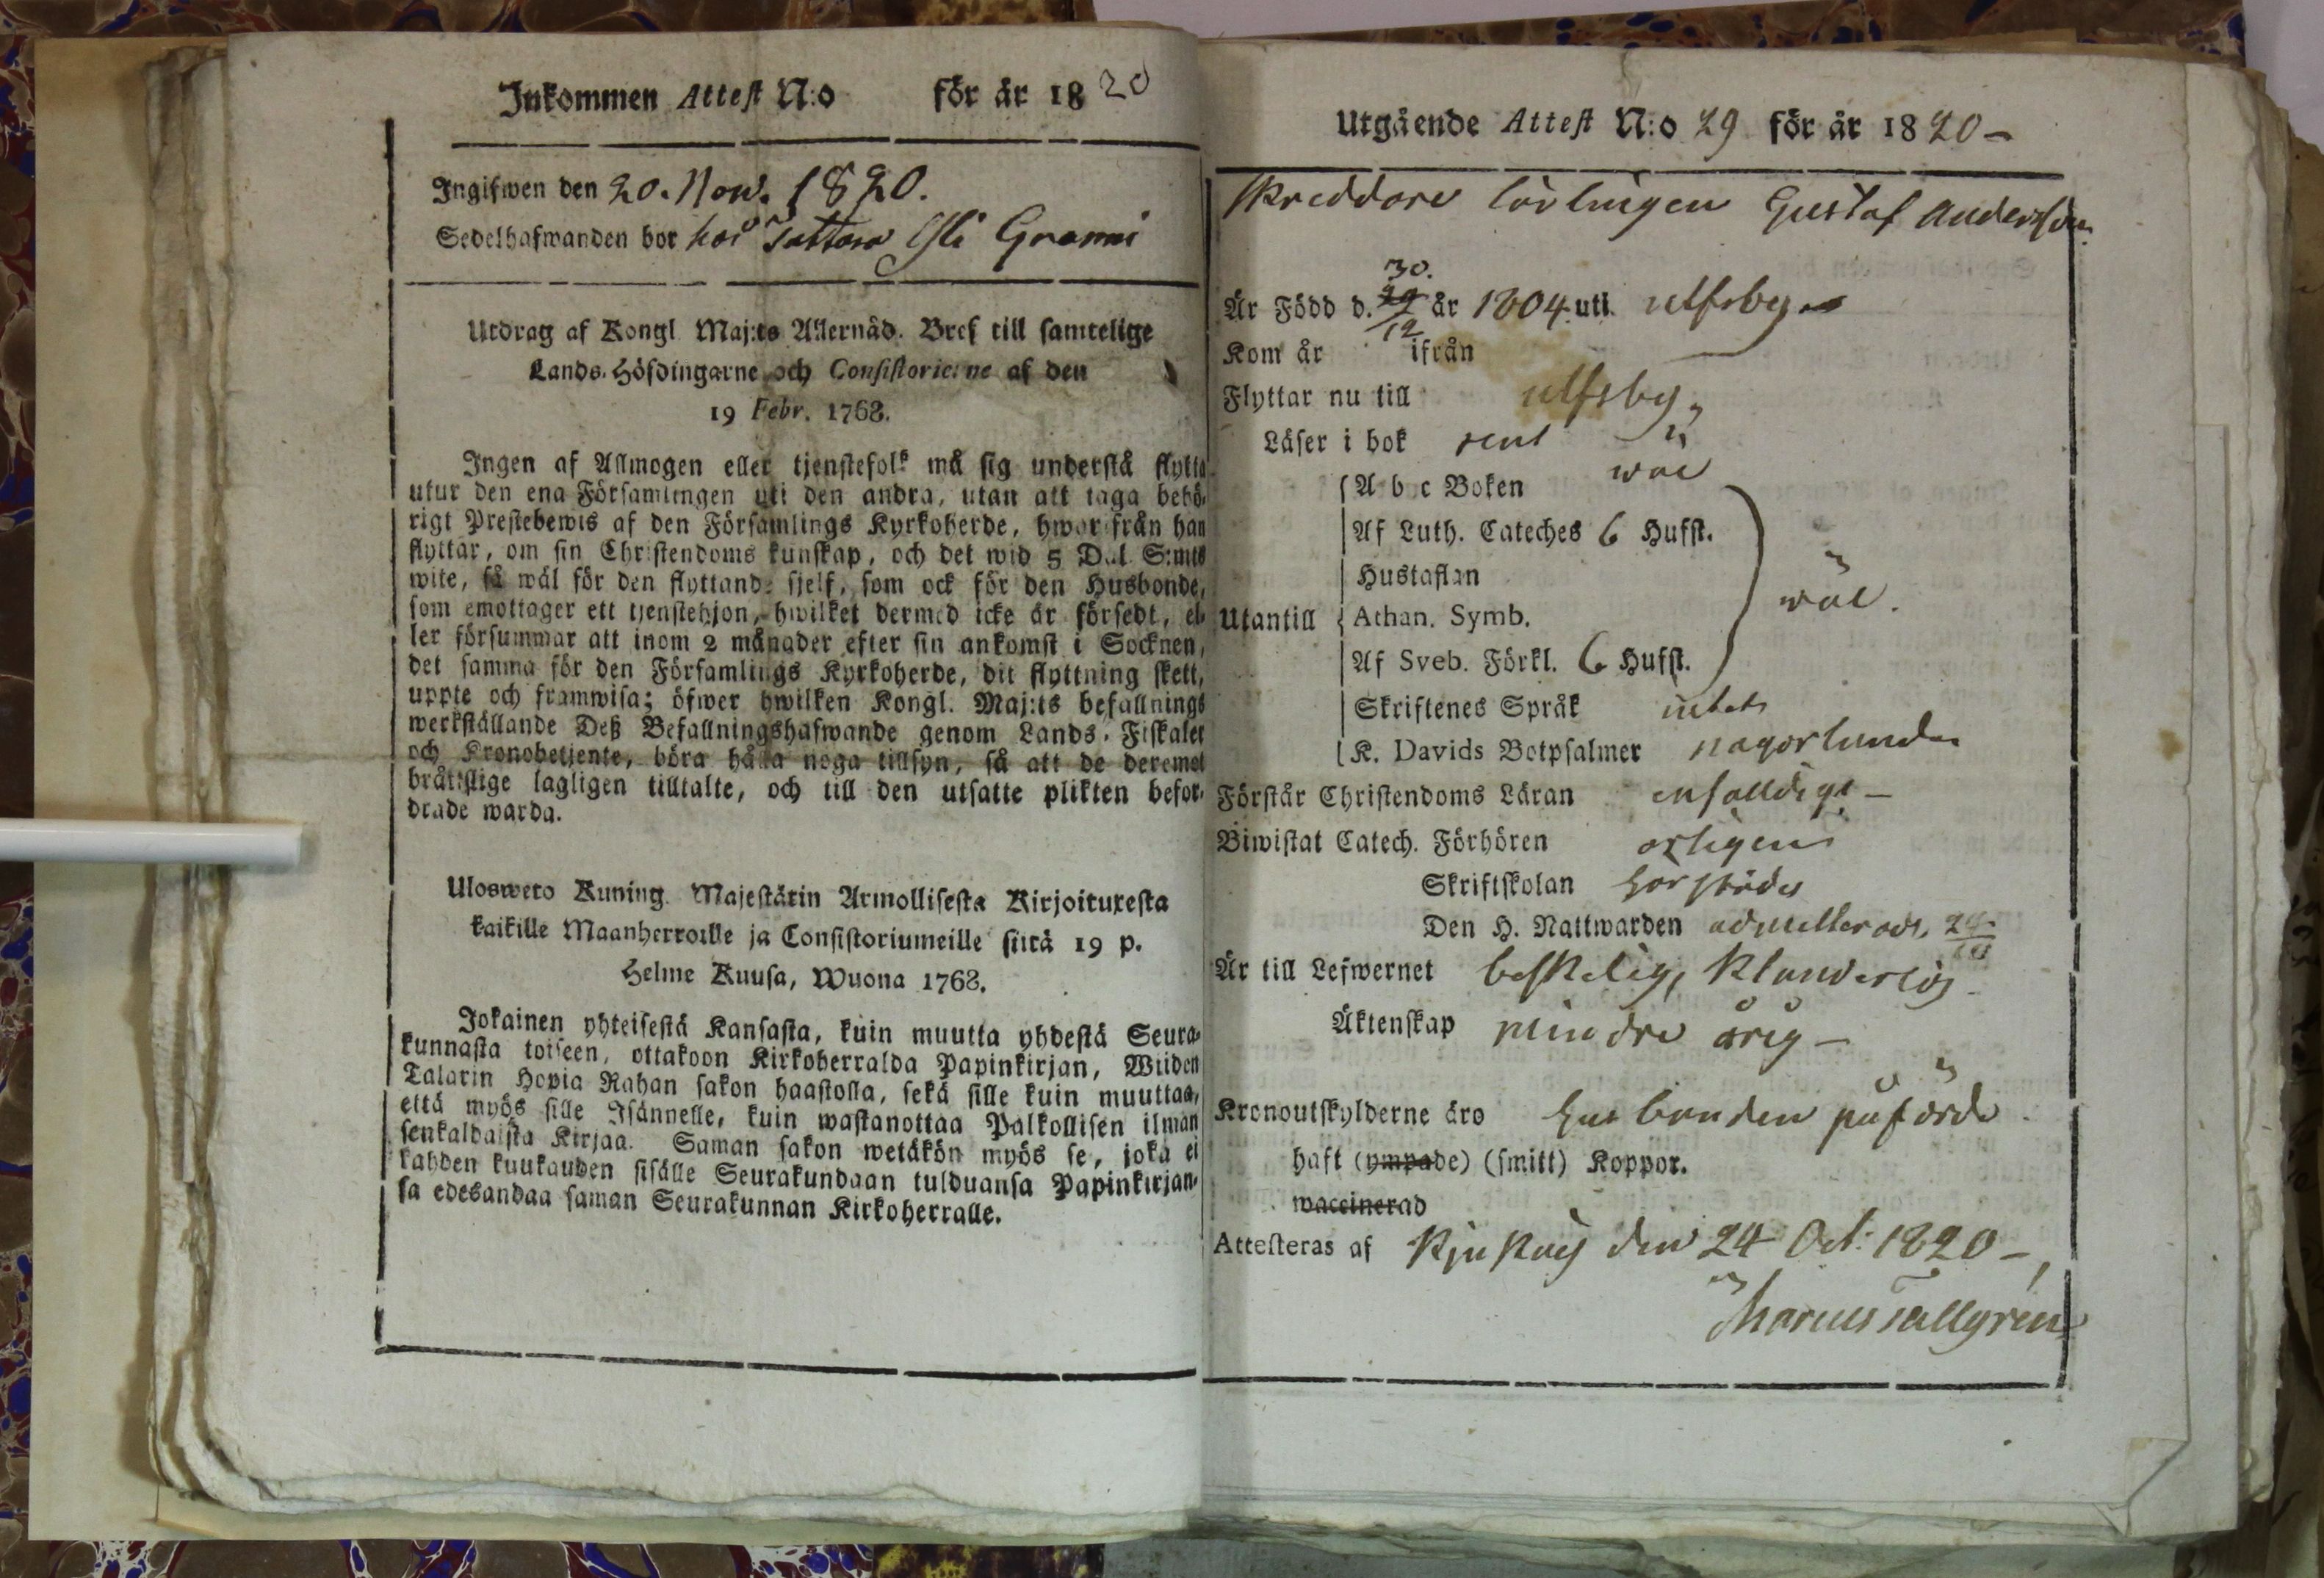 Inkommen Attest N:o för år 1820
Ingifwen den 20. Nov. 1820.
Sedelhafwanden bor hos Granni
Utdrag af Kongl. Maj:ts Allernåd. Bref till samtelige
Lands-Höfdingarne och Consistorierne af den
19 Febr. 1768.
Ingen af Allmogen eller tjenstefolk må sig understå flytta
utur den ena Församlingen uti den andra, utan att taga behö-
rigt Prestebewis af den Församlings Kyrkoherde, hworifrån han
flyttar, om sin Christendoms kunskap, och det wid 5 Dal. S:mts
wite, så wäl för den flyttande sjelf, som ock för den Husbonde,
som emottager ett tjenstehjon, hwilket dermed icke är försedt, el-
ler försummar att inom 2 månader efter sin ankomst i Socknen,
det samma för den Församlings Kyrkoherde, dit flyttning skett,
uppte och framwisa; öfwer hwilken Kongl. Maj:ts befallnings
werkställande Deß Befallningshafwande genom Lands-Fiskaler
och Kronobetjente, böra hålla noga tillsyn, så att de deremot
bråttslige lagligen tilltalte, och till den utsatte plikten befor-
drade warda.
Uloswero Kuning. Majestätin Armollisesta Kirjoituxesta
kaikille Maanherroille ja Consistoriumeille siitä 19 p.
Helme Kuusa, Wuona 1768.
Jokainen yhteisestä Kansasta, kuin muutta yhdestä Seura-
kunnasta toiseen, ottakoon Kirkoherralda Papinkirjan, Wiiden
Talarin Hopia Rahan sakon haastolla, sekä sille kuin muuttaa,
että myös sille Isännelle, kuin wastanottaa Palkollisen ilman
senkaldaista Kirjaa. Saman sakon wetäkön myös se, joka ei
kahden kuukauden sisälle Seurakundaan tulduansa Papinkirjan-
sa edesandaa saman Seurakunnan Kirkoherralle.
Utgående Attest N:o 29 för år 1820 –
Skreddare lärlingen Gustaf Andersson
30.
Är Född d. 29/12 år 1804 uti Ulfsby
Kom år ifrån
Flyttar nu till Ulfsby
Läser i bok rent
A b c Boken wäl
Af Luth. Cateches 6 Hufst.
Hustaflan
Utantill Athan. Symb. wäl.
Af Sveb. Förkl. 6 Hufst.
Skriftenes Språk intet
K. Davids Botpsalmer någorlunda
Förstår Christendoms Läran enfalldigt –
Biwistat Catech. Förhören årligen
Skriftskolan härstädes
Den H. Nattwarden admitterad, 24/10
Är till Lefwernet beskelig, klanderlös
Äktenskap minderårig –
Kronoutskylderne äro husbonden påförde
haft (ympade) (smitt) Koppor.
waccinerad
Attesteras af Kjukais den 24 Oct: 1820 –
Tallgren